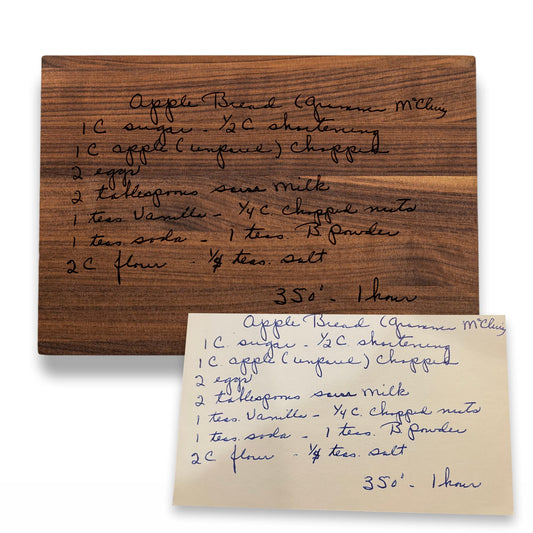 Apple Bread (
1 C sugar - 1/2 C shortening
1 C apple (unpared) chopped
2 eggs
2 tablespoons sour milk
1 teas. Vanilla - 1/4 C. chopped nuts
1 teas. soda - 1 teas. B powder
2 C flour - teas. salt
350° - 1 hour
Apple Bread (
1 C. sugar - 1/2 C shortening
1 C. apple (unpared) chopped
2 eggs
2 tablespoons sour milk
1 teas. Vanilla - 1/4 C. chopped nuts
1 teas. soda - 1 teas. B powder
2 C flour - teas. salt
350° - 1 hour